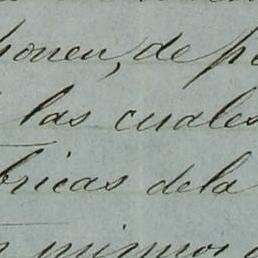 ponen, de pe
las cuales
bricas dela
mismos